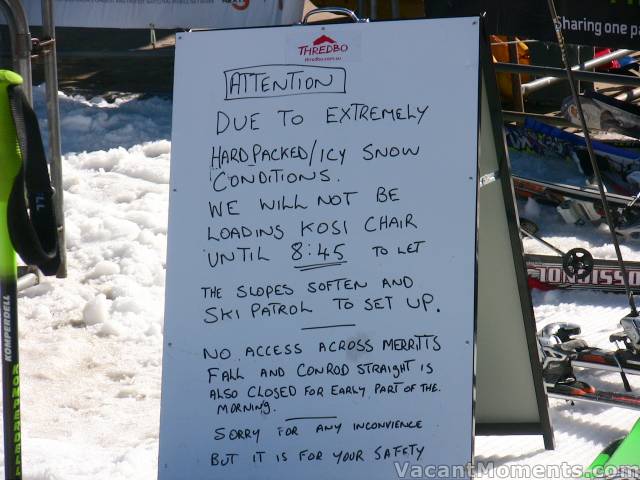 Sharing one pa
THREDBO
thredbo.com.au
ATTENTION
DUE TO EXTREMELY
HARD PACKED/ICY SNOW
CONDITIONS.
WE WILL NOT BE
LOADING KOSI CHAIR
UNTIL 8:45 TO LET
THE SLOPES SOFTEN AND
SKI PATROL TO SET UP.
NO ACCESS ACROSS MERRITTS
FALL AND CONROD STRAIGHT IS
ALSO CLOSED FOR EARLY PART OF THE
MORNING.
SORRY FOR ANY INCONVIENCE
BUT IT IS FOR YOUR SAFETY
KOMPERDELL
KOMPERDELL
ROSSIGNOL
VacantMoments.com